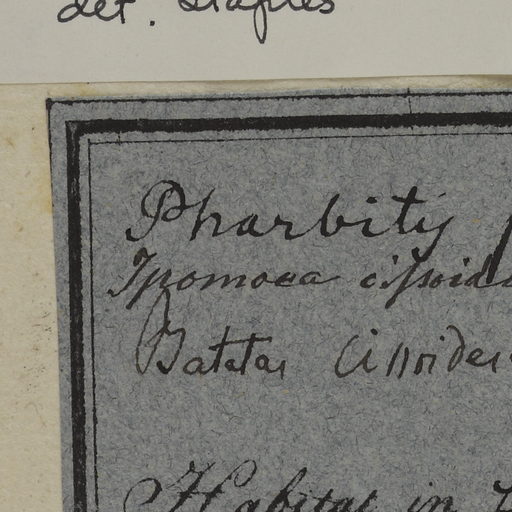 det. Staples
Pharbitis
Ipomoea cissoid
Batatas Cissoides
Habitat in